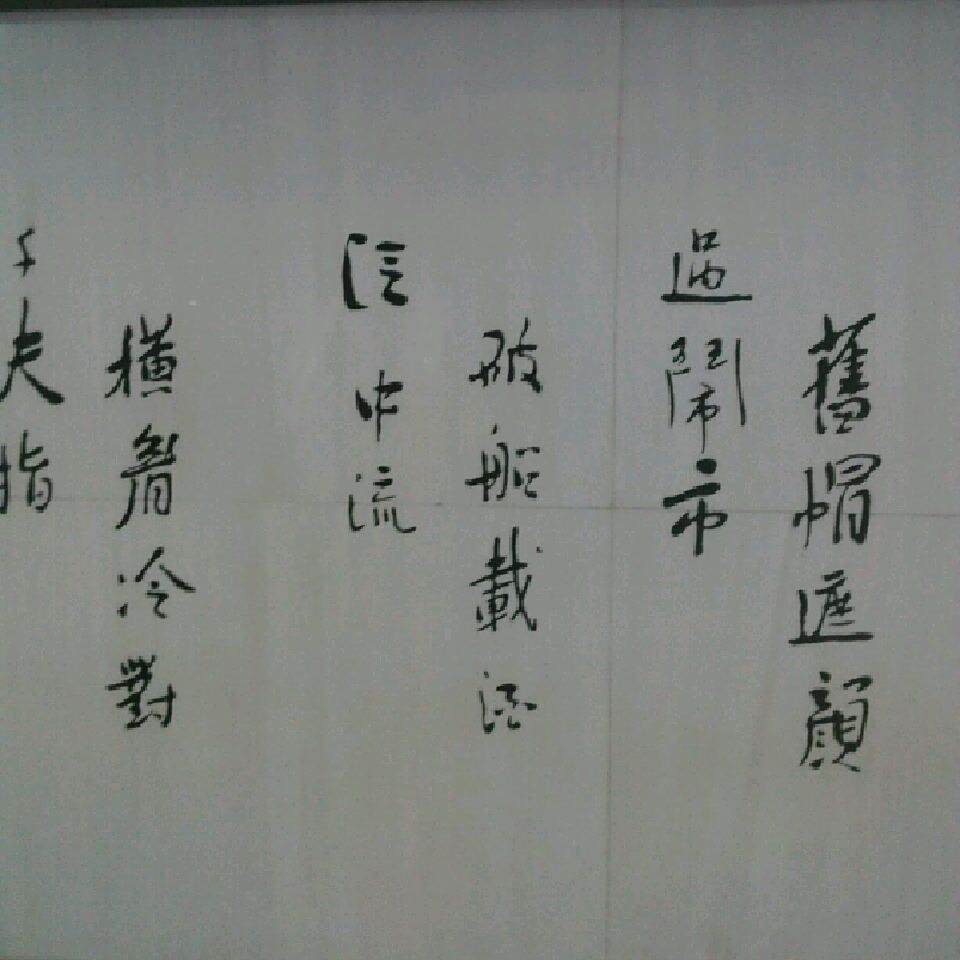 舊帽遮顏
過鬧市
破船載酒
泛中流
橫眉冷對
千夫指